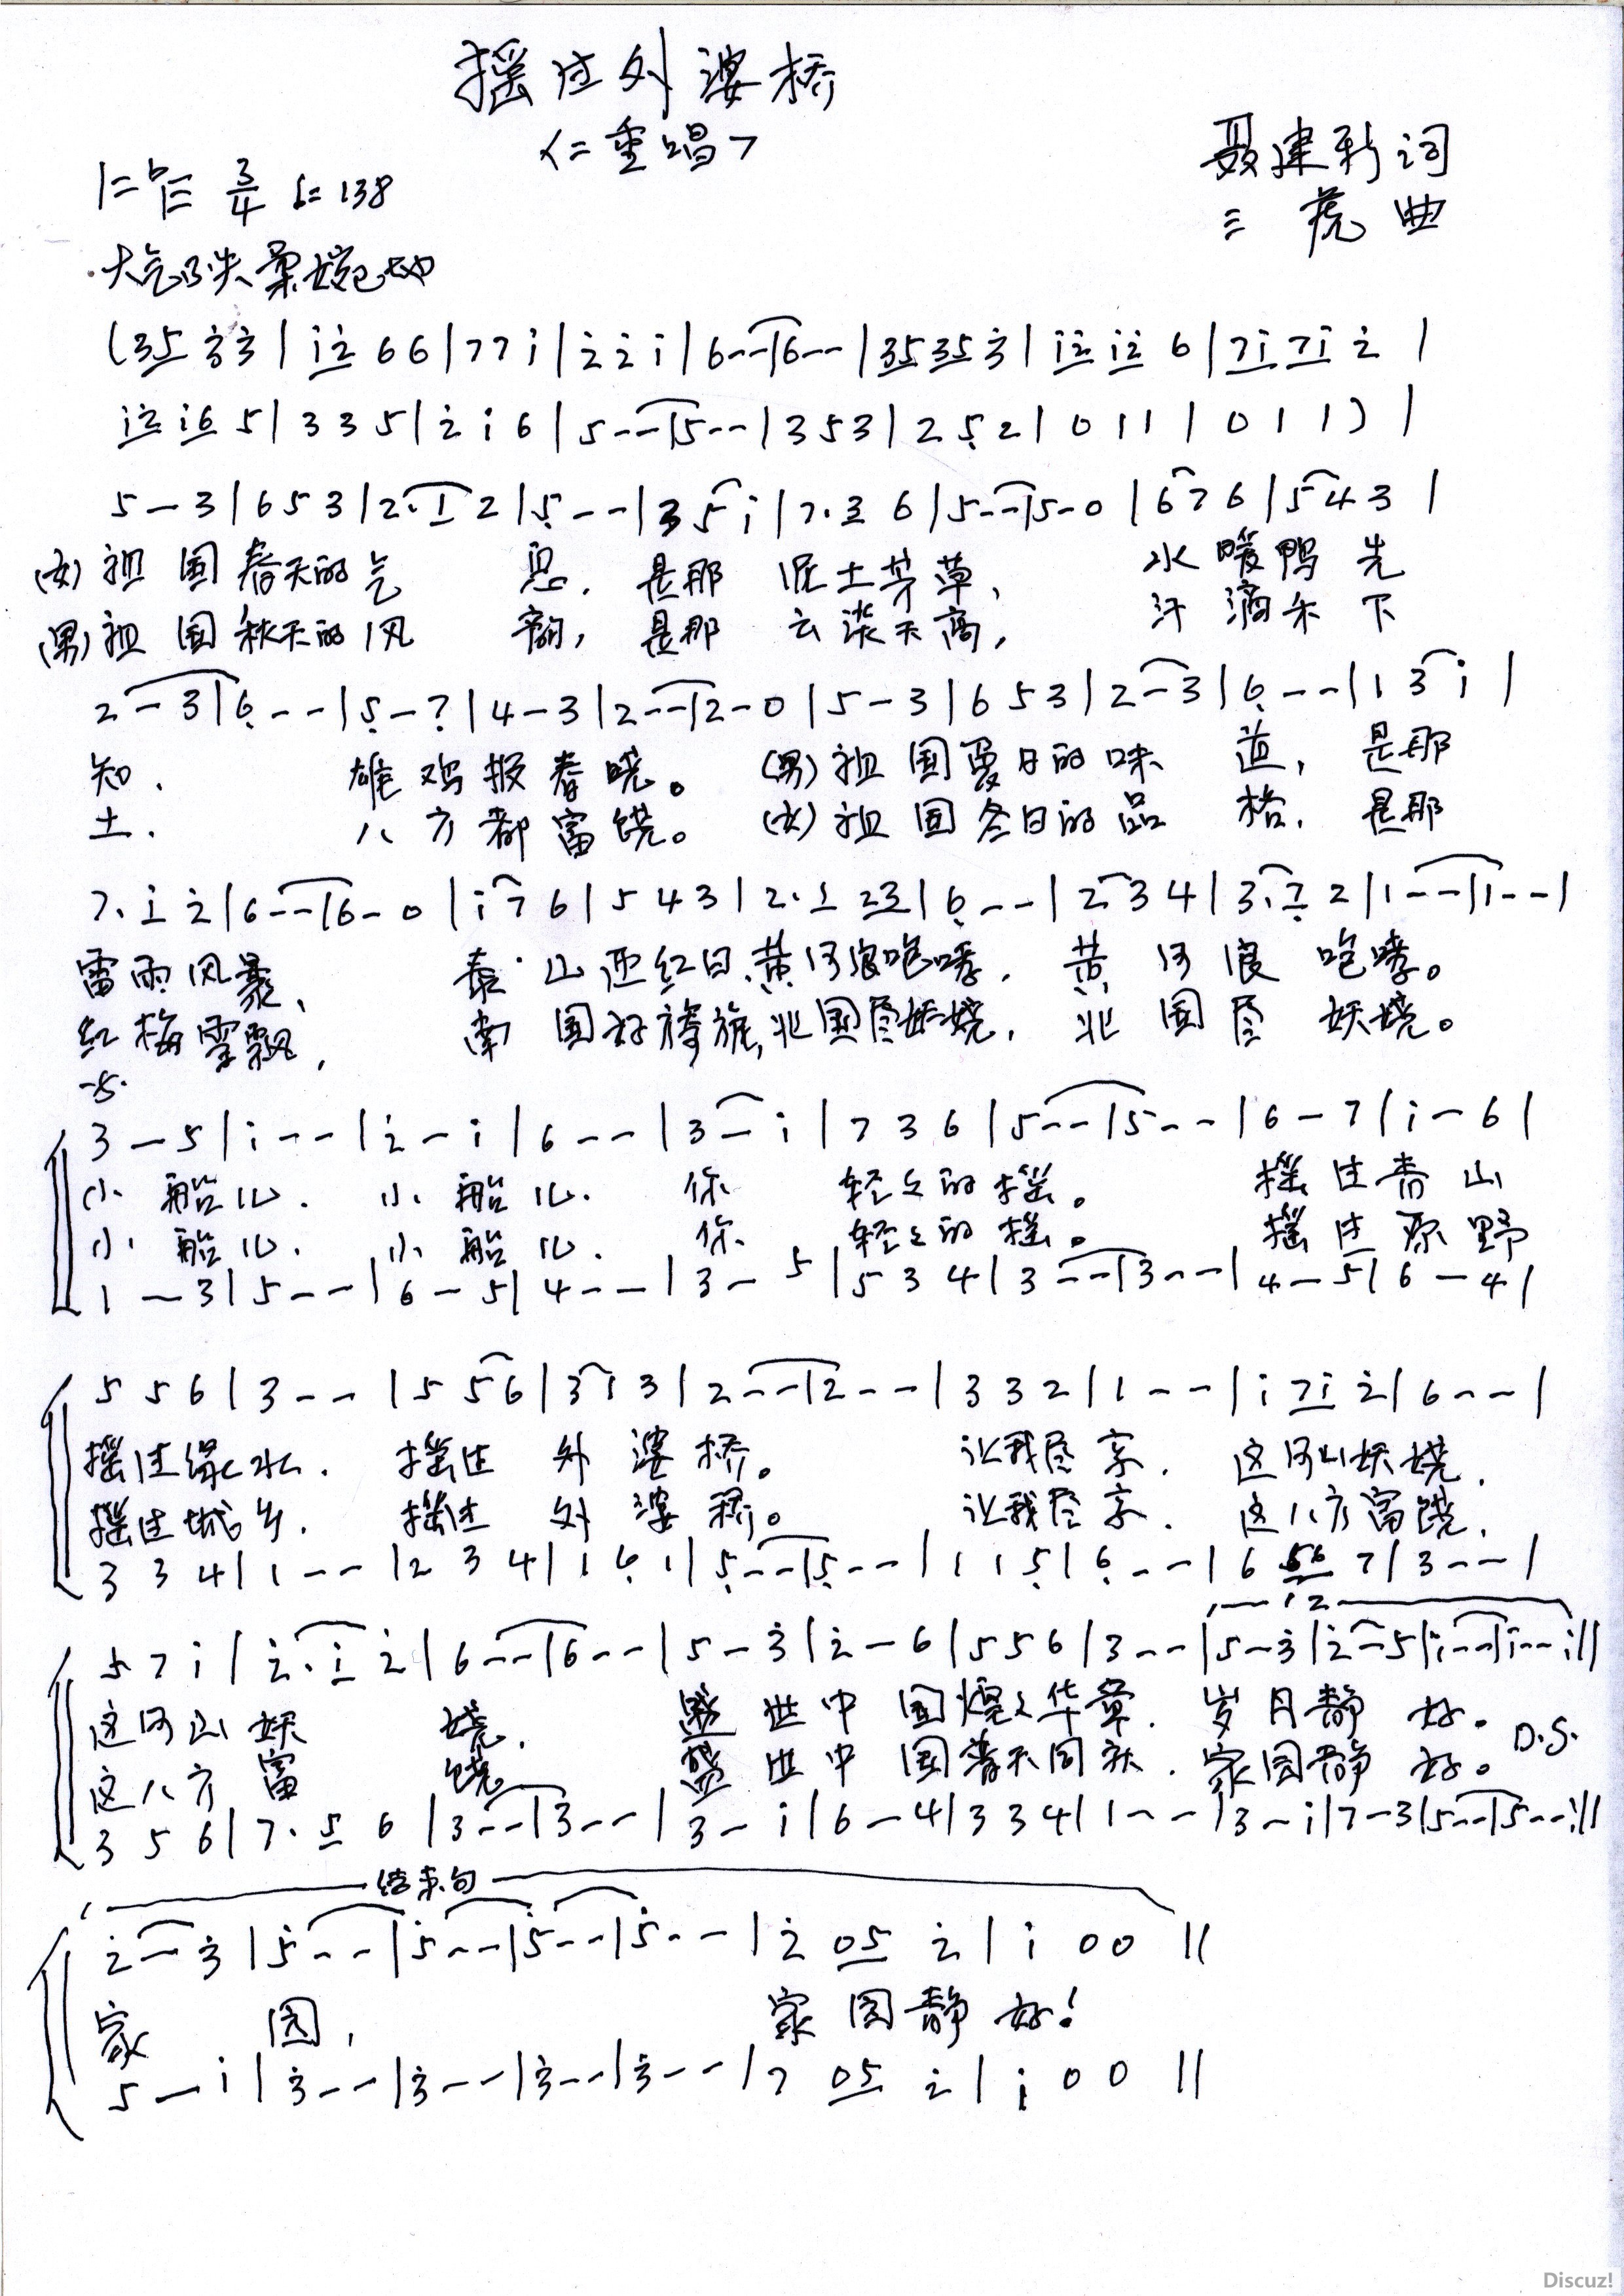 摇过外婆桥
<二重唱>
1=♭E 3/4 ♩=138
聂建新词
三虎曲
大气 柔婉
(35 3̇3̇ | 1̇2̇ 6 6 | 7 7 1̇ | 2̇ 2̇ 1̇ | 6 - - | 6 - - | 35 35 3̇ | 1̇2̇ 1̇2̇ 6 | 71̇ 71̇ 2̇ |
1̇2̇ 1̇6 5 | 3 3 5 | 2̇ 1̇ 6 | 5 - - | 5 - - | 3 5 3 | 2 5̣ 2 | 0 1 1 | 0 1 1 ) |
5 - 3 | 6 5 3 | 2. 1 2 | 5̣ - - | 3 5 1̇ | 7. 3 6 | 5 - - | 5 - 0 | 6 7 6 | 5 4 3 |
(女) 祖国春天的气息,是那泥土芳草,水暖鸭先
(男) 祖国秋天的风韵,是那云淡天高,汗滴禾下
2 - 3 | 6̣ - - | 5̣ - 7̣ | 4 - 3 | 2 - - | 2 - 0 | 5 - 3 | 6 5 3 | 2 - 3 | 6̣ - - | 1 3 1̇ |
知,雄鸡报春晓。(男)祖国夏日的味道,是那
土,八方都富饶。(女)祖国冬日的品格,是那
7. 1̇ 2̇ | 6 - - | 6 - 0 | 1̇ 7 6 | 5 4 3 | 2. 1 23 | 6̣ - - | 2 3 4 | 3. 7̣ 2 | 1 - - | 1 - - |
雷雨风暴,泰山迎红日,黄河浪咆哮,黄河浪咆哮。
红梅雪飘,南国好旖旎,北国尽妖娆,北国尽妖娆。
3 - 5 | 1̇ - - | 2̇ - 1̇ | 6 - - | 3 - 1̇ | 7 3 6 | 5 - - | 5 - - | 6 - 7 | 1̇ - 6 |
小船儿,小船儿,你轻轻的摇。摇过青山
小船儿,小船儿,你轻轻的摇。摇过原野
1 - 3 | 5 - - | 6 - 5 | 4 - - | 3 - 5 | 5 3 4 | 3 - - | 3 - - | 4 - 5 | 6 - 4 |
5 5 6 | 3 - - | 5 5 6 | 3 1 3 | 2 - - | 2 - - | 3 3 2 | 1 - - | 1̇ 71̇ 2̇ | 6 - - |
摇过绿水,摇过外婆桥。让我尽享,这河山妖娆,
摇过城乡,摇过外婆桥。让我尽享,这八方富饶,
3 3 4 | 1 - - | 2 3 4 | 1 6̣ 1 | 5̣ - - | 5̣ - - | 1 1 5̣ | 6̣ - - | 6 56 7 | 3 - - |
1 2
5 7 1̇ | 2̇. 1̇ 2̇ | 6 - - | 6 - - | 5 - 3̇ | 2̇ - 6 | 5 5 6 | 3 - - | 5 - 3̇ | 2̇ - 5 | 1̇ - - | 1̇ - - :||
这河山妖娆,盛世中国熠熠华章,岁月静好。
D.S.
这八方富饶,盛世中国普天同庆,家园静好。
3 5 6 | 7. 5 6 | 3 - - | 3 - - | 3 - 1̇ | 6 - 4 | 3 3 4 | 1 - - | 3 - 1̇ | 7 - 3 | 5 - - | 5 - - :||
结束句
2̇ - 3̇ | 5̇ - - | 5̇ - - | 5̇ - - | 5̇ - - | 2̇ 05 2̇ | 1̇ 0 0 ||
家园,家园静好!
5 - 1̇ | 3̇ - - | 3̇ - - | 3̇ - - | 3̇ - - | 7 05 2̇ | 1̇ 0 0 ||
Discuz!